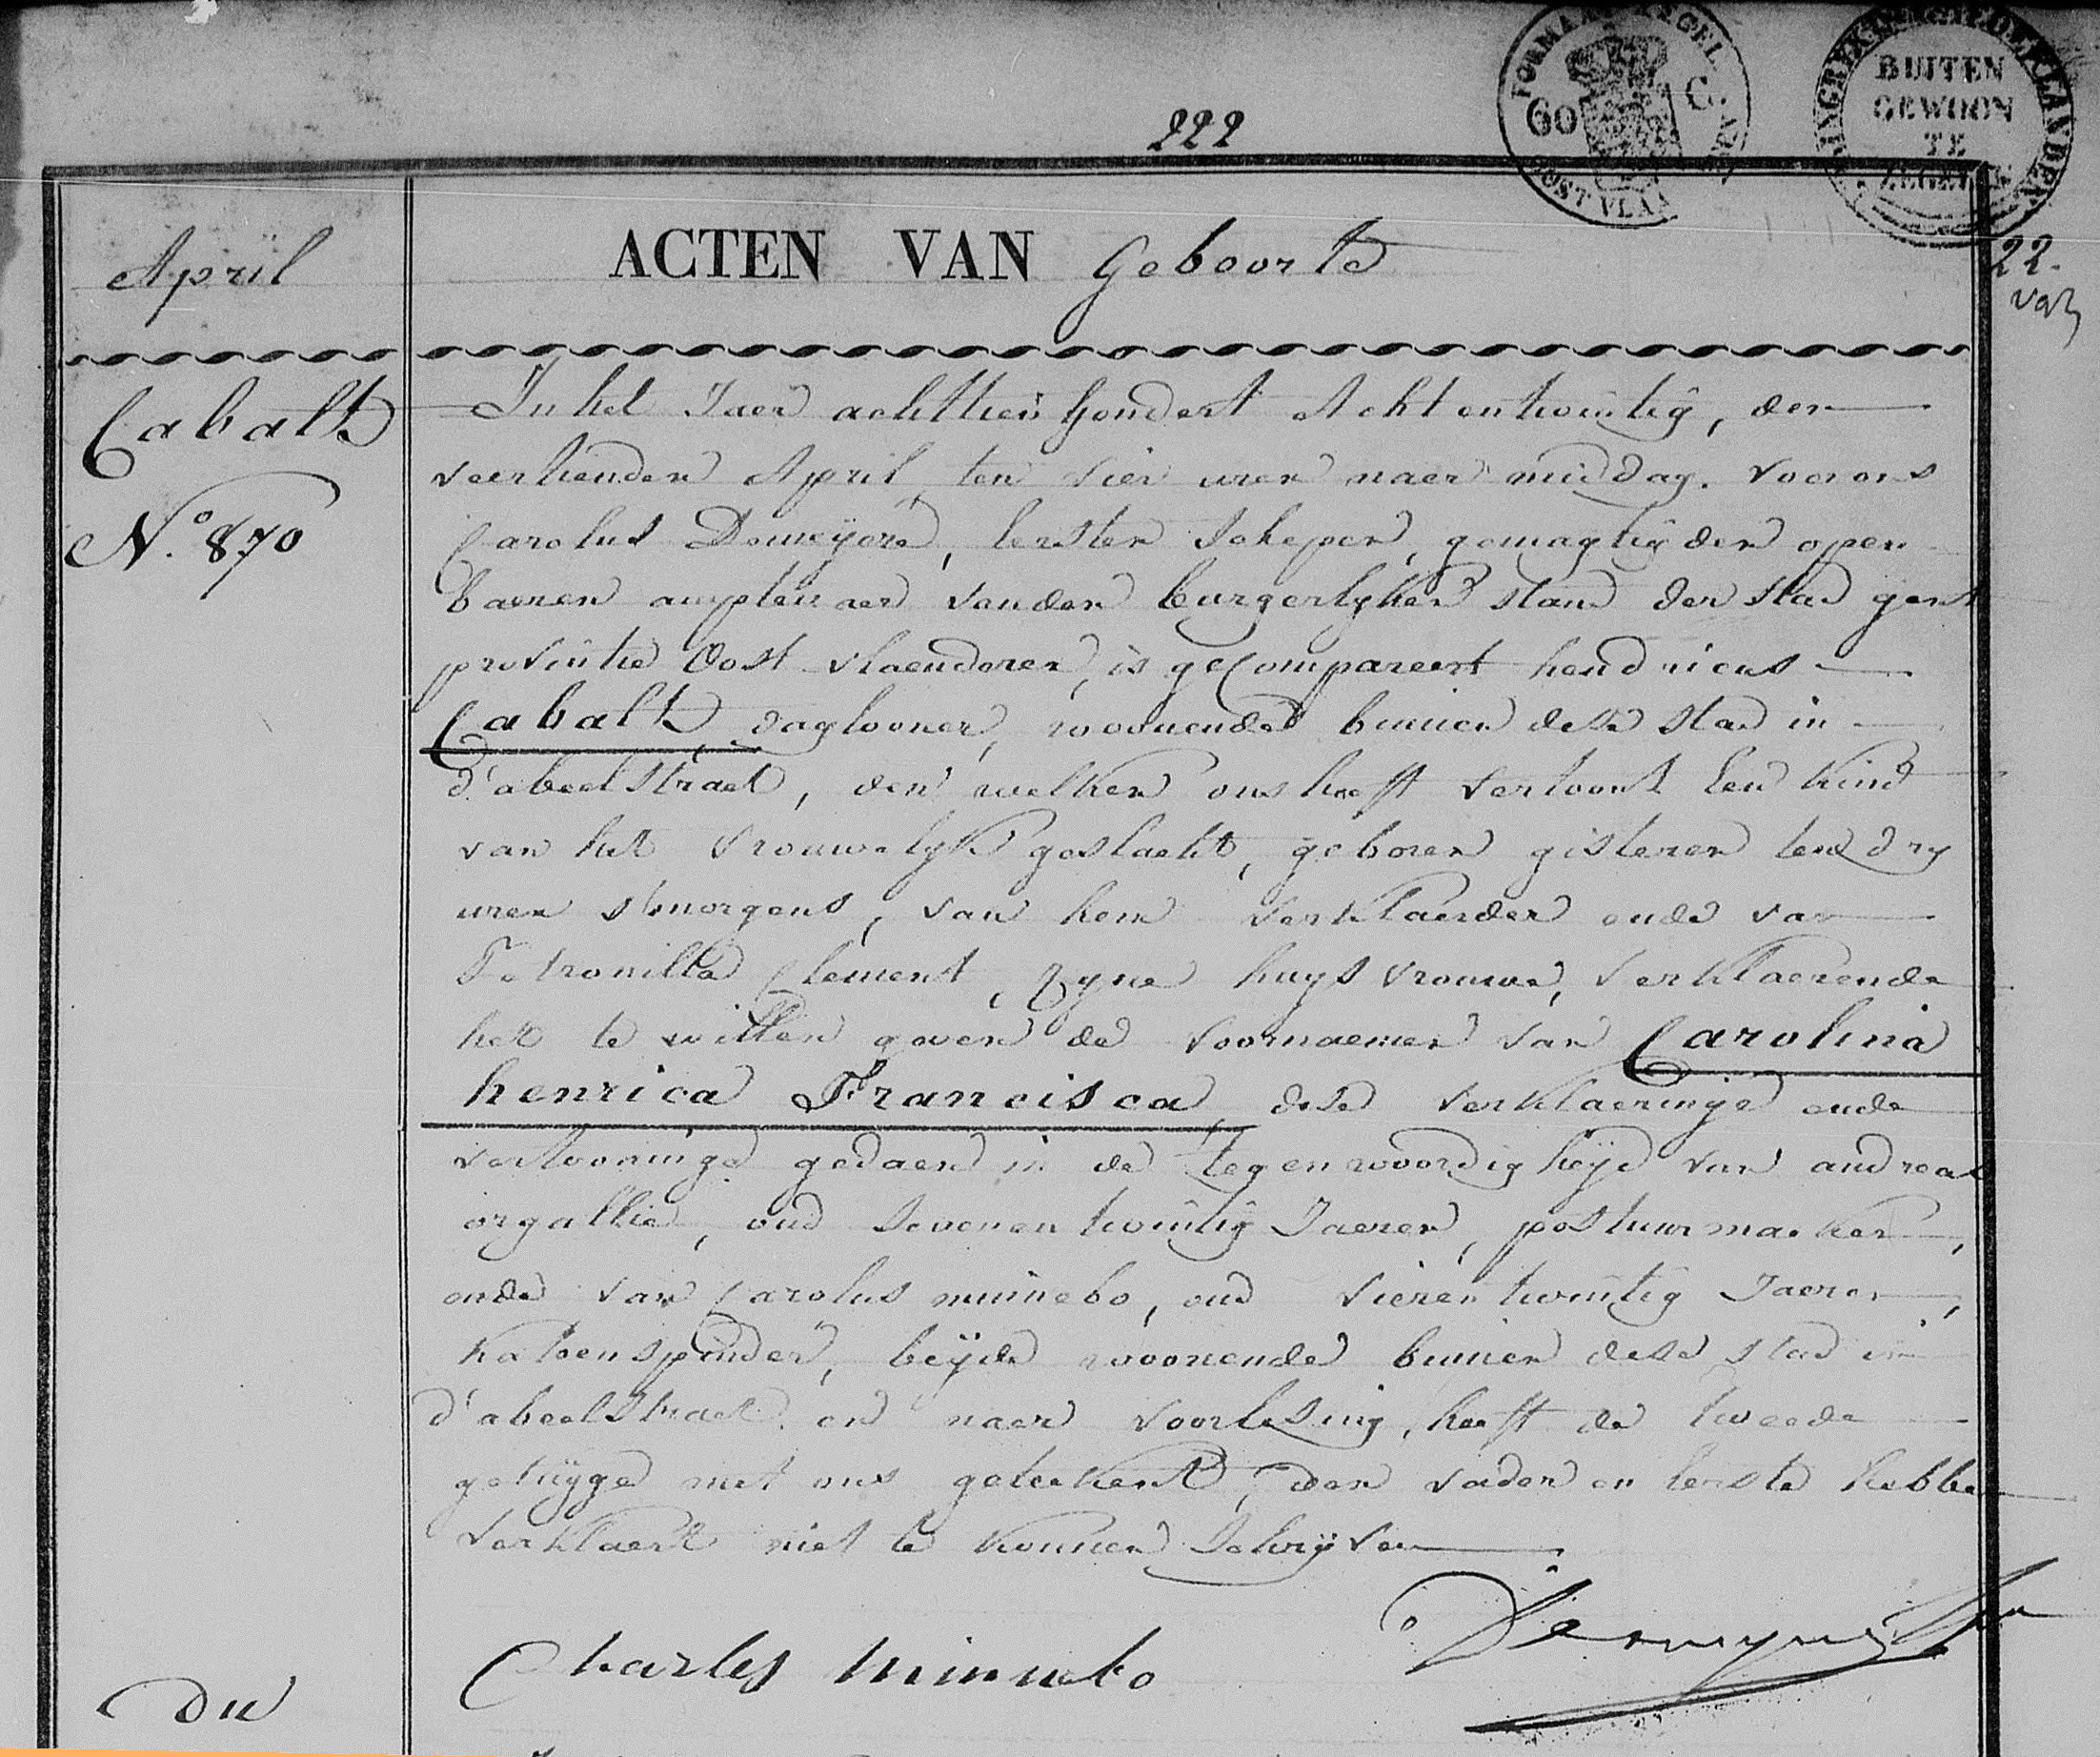 222
FORMAAT ZEGEL.
60 C.
OOST VLAA
KONINGRYK DER NEDERLANDEN
BUITEN
GEWOON
TE
ZEGELEN
22.
April
ACTEN VAN Geboorte
Cabalt
N.° 870
In het Jaer achttien hondert Acht entwintig, den
veerthienden April, ten vier uren naer middag. Voor ons
Carolus Demeyere, Eersten Schepen, gemagtigden open
baeren amptenaer van den burgerlyken stand der stad gent
provintie Oost vlaenderen, is gecompareert hendricus
Cabalt, daglooner, woonende binnen dese stad in
d'abeelstraet, den welken ons heeft vertoont Een kind
van het vrouwelyk geslacht, geboren gisteren ten dry
uren s'morgens, van hem verklaerder ende van
Petronilla Clement, zyne huysvrouwe, verklaerende
het te willen geven de voornaemen van Carolina
henrica Francisca, dese verklaeringe ende
vertooninge gedaen in de tegenwoordigheyd van andreas
orgallie, oud sevenentwintig Jaeren, postuurmaeker,
ende van Carolus minnebo, oud vierentwintig Jaeren,
katoenspinder, beyde woonende binnen dese stad in
d'abeelstraet. en naer voorlesing, heeft de tweede
getuyge met ons geteekent, den vader en Eerste hebbe
verklaert niet te konnen schryven
Charles Minnebo
Du